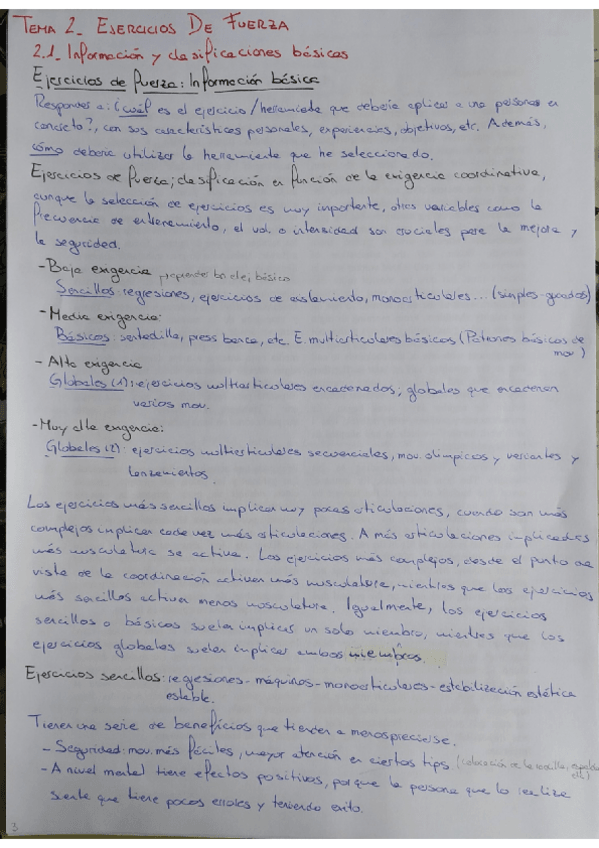 TEMA 2. EJERCICIOS DE FUERZA
2.1. Información y clasificaciones básicas
Ejercicios de fuerza: Información básica
Responder a: ¿cuál es el ejercicio/herramienta que debería aplicar a una persona en
concreto?, con sus características personales, experiencias, objetivos, etc. Además,
cómo debería utilizar la herramienta que he seleccionado.
Ejercicios de fuerza; clasificación en función de la exigencia coordinativa,
aunque la selección de ejercicios es muy importante, otras variables como la
frecuencia de entrenamiento, el vol. o intensidad son cruciales para la mejora y
la seguridad.
- Baja exigencia básico
Sencillos: regresiones, ejercicios de aislamiento, monoarticulares... (simples-guiados)
- Media exigencia:
Básicos: sentadilla, press banca, etc. E. multiarticulares básicos (Patrones básicos de
mov.)
- Alta exigencia
Globales (1): ejercicios multiarticulares encadenados; globales que encadenan
varios mov.
- Muy alta exigencia:
Globales (2): ejercicios multiarticulares secuenciales, mov. olímpicos y variantes y
lanzamientos.
Los ejercicios más sencillos implican muy pocas articulaciones, cuando son más
complejos implican cada vez más articulaciones. A más articulaciones implicadas
más musculatura se activa. Los ejercicios más complejos, desde el punto de
vista de la coordinación activan más musculatura, mientras que los ejercicios
más sencillos activan menos musculatura. Igualmente, los ejercicios
sencillos o básicos suelen implicar un solo miembro, mientras que los
ejercicios globales suelen implicar ambos miembros.
Ejercicios sencillos: regresiones - máquinas - monoarticulares - estabilización estática
estable.
Tienen una serie de beneficios que tienden a menospreciarse.
- Seguridad: mov. más fáciles, mayor atención en ciertos tips (colocación de la rodilla, espalda
etc)
- A nivel mental tiene efectos positivos, porque la persona que lo realiza
siente que tiene pocos errores y teniendo éxito.
3